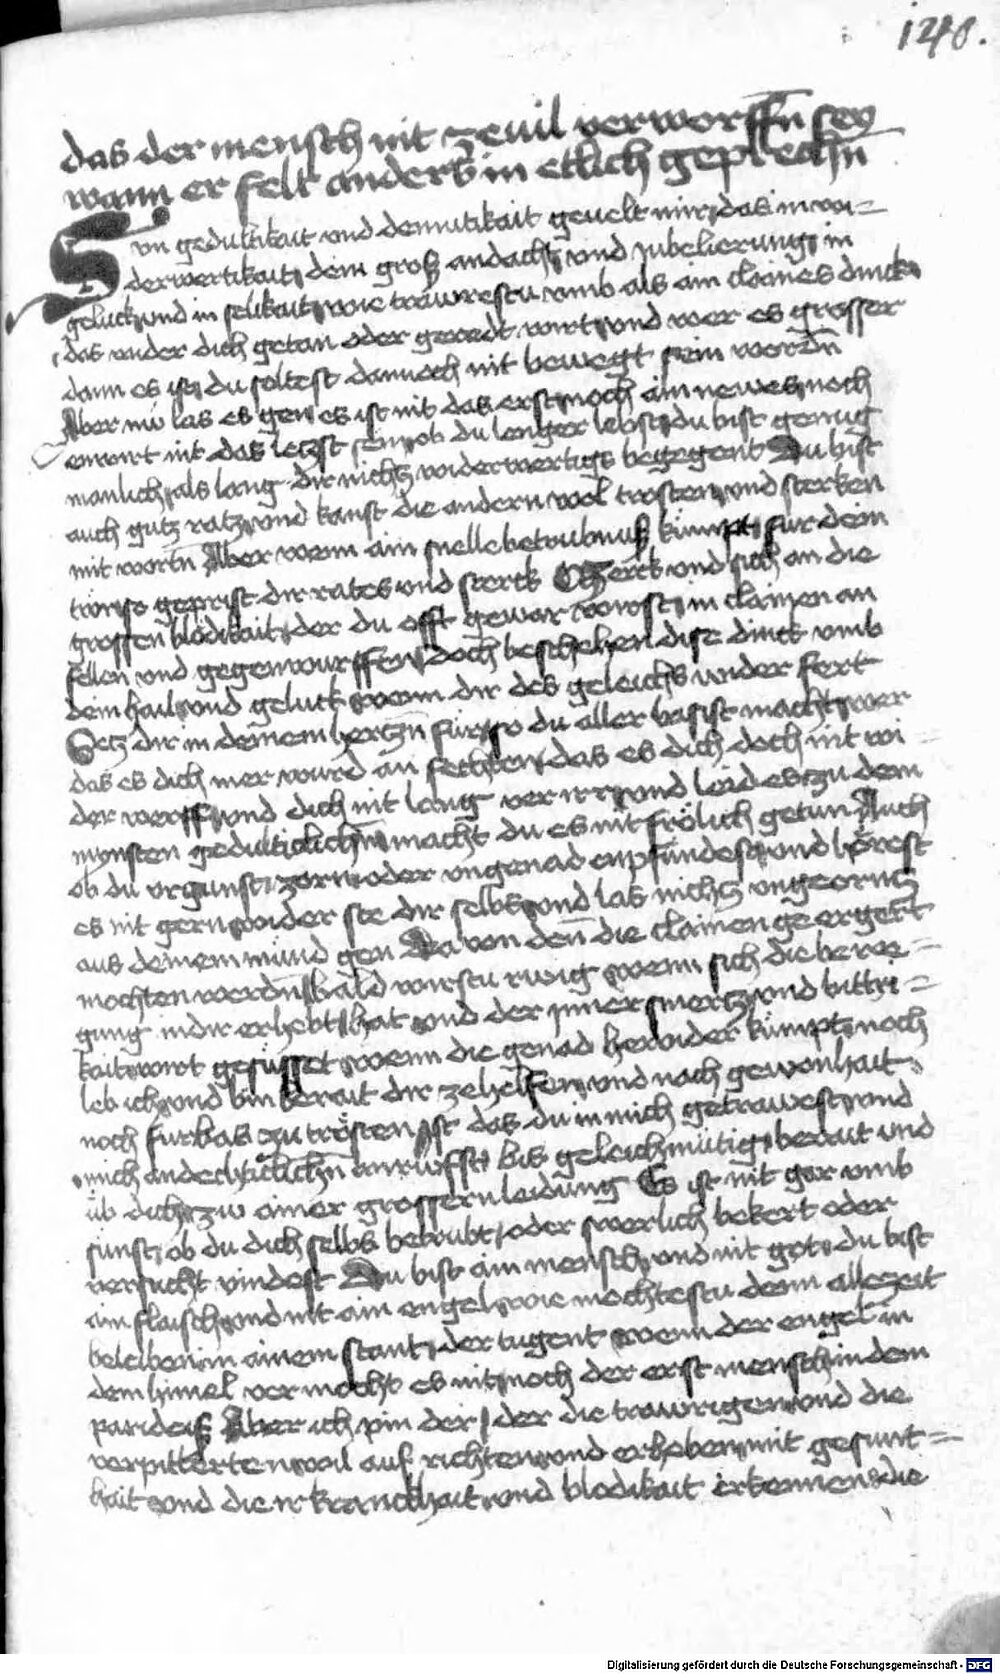 140.
das der mensch nit zevil verworffn sey
wann er felt anderß in etlich geprechn
Sun gedultikait und demutikait gevelt mir, das in wi=
derwertikait, dein groß andacht, und jubelierung, in
geluck, und in selikait, wie trawrestu umb als ain claines dinck,
das wider dich getan oder geredt wirt, und wer es grosser
dann es ist, du soltest dannoch nit bewegt sein wordn
Aber nu las es gen es ist nit das erst, noch ain newes, noch
enwirt nit das letzst sein, ob du lenger lebst, du bist genug
manlich, als lang dir nichtz widerwertigs begegent Du bist
auch gutz ratz, und kanst die andern wol trosten, und sterken
mit wortn Aber wenn ain snelle betrubnuß kumpt, fur dein
tür so geprist dir rates und sterck Merck und sich an die
grossen blodikait, der du offt gewar wirst, in clainen an
fellen und gegenwurffen, doch beschehen dise dinck umb
dein hail, und geluck, wenn dir des geleichs wider fert
Setz dir in deinem hertzn für, so du aller basist macht, wer
das es dich mer wurd an fechten, das es dich doch nit wi=
der werff, und dich nit lang ver irr, und leid es, zu dem
mynsten gedultiklichn, macht du es nit frölich getun Auch
ob du ungunst, zorn, oder ungenad empfindest, und hörest
es nit gern, wider ste dir selbs, und las nichtz ungeorntz
aus deinem mund gen Da von den die clainen ge ergert
mochten werdn, bald wirstu ruig, wenn sich die bewe=
gung in dir erhebt hat, und der inner smertz, und bittri=
kait, wirt gesüsset, wenn die genad herwider kumpt, noch
leb ich, und bin berait dir zehelfen, und nach gewonhait,
noch furbas zu trösten, ist das du in mich getrawest, und
mich andechticlichn anrüffst, bis geleichmütig, berait und
üb dich, zw ainer grossern leidung Es ist nit gar umb
sunst, ob du dich selbs betrubt, oder swerlich bekert oder
versucht vindest Du bist ain mensch, und nit got, du bist
ain flaisch, und nit ain engel, wie mochtestu denn allezeit
beleiben in ainem stant, der tugent, wenn der engel in
dem himel vermocht es nit, noch der erst mensch, in dem
paridiß Aber ich pin der, der die trawrigen, und die
verpitterten, wil auf richten, und erheben, mit gesunt=
hait, und die ir kranckhait, und blodikait erkennen, die
Digitalisierung gefördert durch die Deutsche Forschungsgemeinschaft - DFG